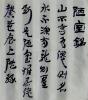 陋室銘
山不在高有仙則名
水不在深有龍則
靈斯是陋室惟吾德
馨苔痕上階綠